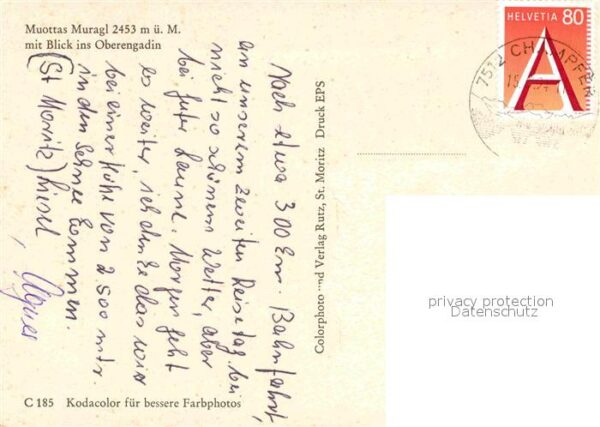 Muottas Muragl 2453 m ü. M.
mit Blick ins Oberengadin
Nach etwa 300 Km. Bahnfahrt,
an unserem zweiten Reisetag, bei
nicht so schönem Wetter, aber
bei guter Laune. Morgen geht
es weiter, ich denke das wir
bei einer Höhe von 2.500 mtr.
in den Schnee kommen.
(St Moritz) Liesel
Colorphoto und Verlag Rutz, St. Moritz Druck EPS
C 185 Kodacolor für bessere Farbphotos
HELVETIA 80
A
7512 CHAMPFER
privacy protection
Datenschutz